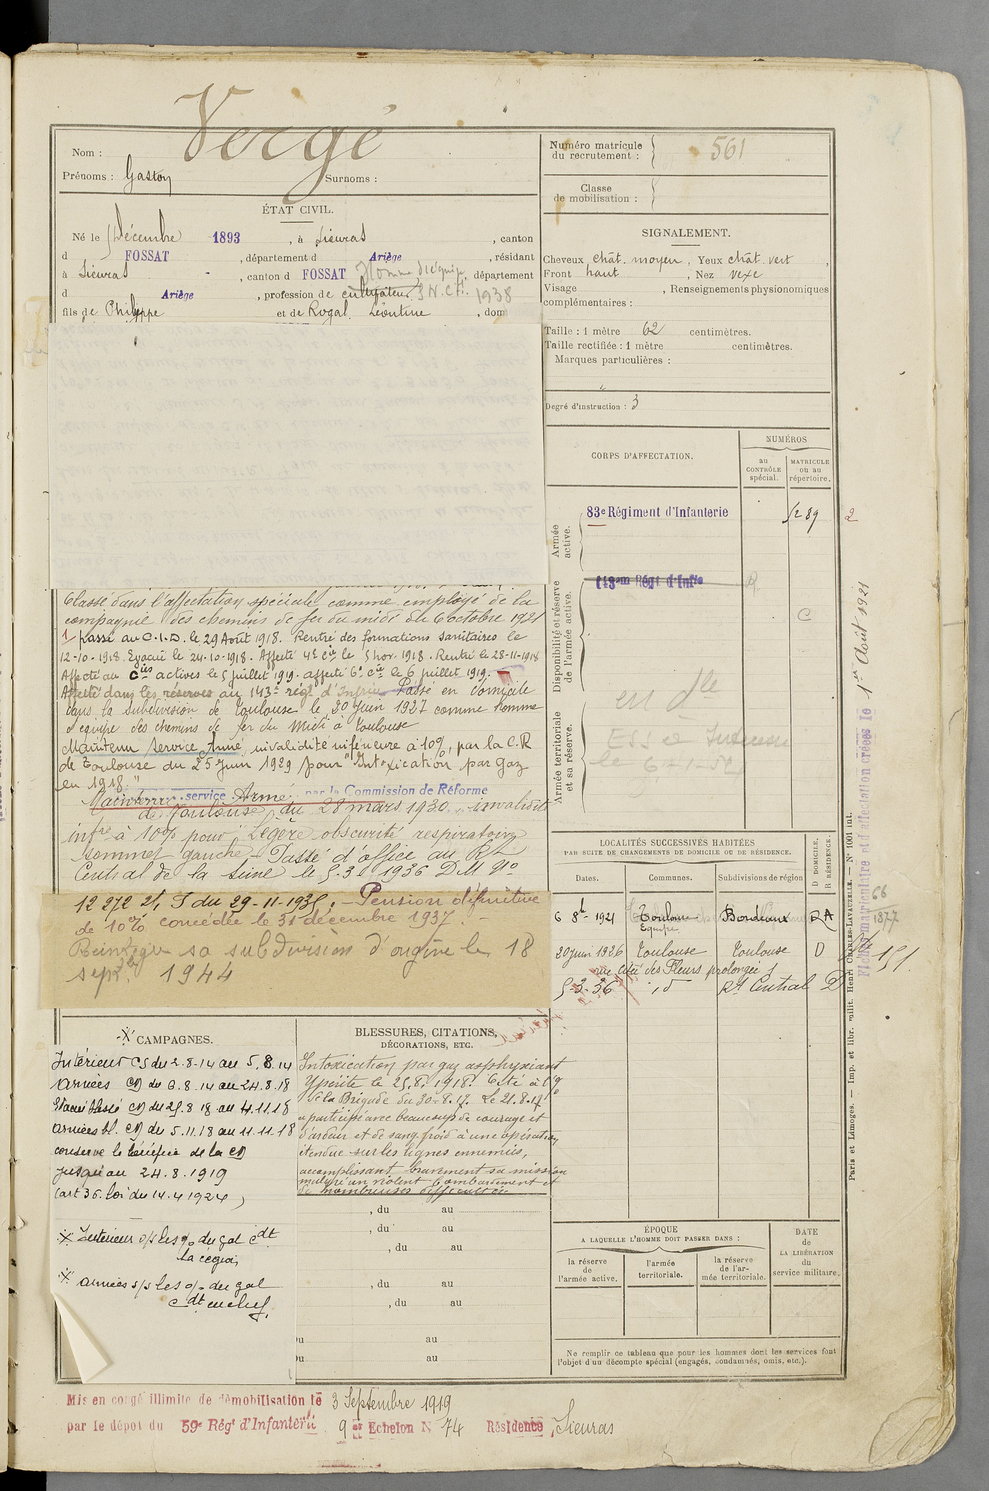 Vergé
Nom :
Prénoms : Gaston Surnoms :
Numéro matricule
du recrutement : 561
Classe
de mobilisation :
ÉTAT CIVIL.
Né le 5 Décembre 1893, à Sieuras, canton
d FOSSAT, département d Ariège, résidant
à Sieuras, canton d FOSSAT, département
d Ariège, profession de cultivateur S.N.C.F. 1938
homme d'équipe
fils de Philippe et de Rogal Léontine, dom
SIGNALEMENT.
Cheveux chât. moyen, Yeux chât. vert,
Front haut, Nez vexe
Visage , Renseignements physionomiques
complémentaires :
Taille : 1 mètre 62 centimètres.
Taille rectifiée : 1 mètre centimètres.
Marques particulières :
Degré d'instruction : 3
CORPS D'AFFECTATION.
NUMÉROS
au
CONTRÔLE
spécial.
MATRICULE
ou au
répertoire.
Armée
active.
83e Régiment d'Infanterie
2
Disponibilité et réserve
de l'armée active.
143em Régt d'Infie
R
C
Armée territoriale
et sa réserve.
en dle
Classé dans l'affectation spéciale comme employé de la
compagnie des chemins de fer du midi du 6 octobre 1921
1 Passé au C.I.D. le 29 Août 1918. Rentré des formations sanitaires le
12-10-1918. Evacué le 24-10-1918. Affecté 4e Cie le 5 nov. 1918. Rentré le 28-11-1918
Affecté au Cies actives le 5 juillet 1919. affecté 6e Cie le 6 juillet 1919.
Affecté dans les réserves au 143e régt d'Infrie Passé en domicile
dans la subdivision de Toulouse le 20 Juin 1927 comme homme
d'équipe des chemins de fer du Midi à Toulouse
Maintenu Service Armé, invalidité inférieure à 10%, par la C.R
de Toulouse du 25 Juin 1929 pour "Intoxication par gaz
en 1918"
Maintenu service Armé par la Commission de Réforme
de Toulouse, du 28 mars 1930. invalidité
infre à 10% pour : Légère obscurité respiratoire
sommet gauche - Passé d'office au Rt
Central de la Seine le 5.3.1936 D.M. No
12 272 2/5 du 29-11-1935. - Pension définitive
de 10% concédée le 31 décembre 1937. -
Réintègre sa subdivision d'origine le 18
sepbre 1944
LOCALITÉS SUCCESSIVES HABITÉES
PAR SUITE DE CHANGEMENTS DE DOMICILE OU DE RÉSIDENCE.
Dates.
Communes.
Subdivisions de région
D DOMICILE.
R RÉSIDENCE.
6 8b 1921 Toulouse Bordeaux RA
20 Juin 1926 Toulouse Toulouse D
rue Cité des Fleurs prolongée 5
5-3-36 id Rt Central D
CAMPAGNES.
Intérieur CS du 2-8-14 au 5.8.14
Armées CD du 6.8.14 au 24.8.18
Evacué blessé CD du 25.8.18 au 4.11.18
Armées bl. CD du 5.11.18 au 11.11.18
conserve le bénéfice de la CD
jusqu'au 24.8.1919
(art 36. loi du 14.4.1924)
※ Intérieur s/s les o/ du gal Cdt
la région
※ Armées s/s les o/ du gal
Cdt en chef.
BLESSURES, CITATIONS,
DÉCORATIONS, ETC.
Intoxication par gaz asphyxiant
Ypérite le 25.8.1918. Cité à l'o
de la Brigade du 30-8-17. Le 21.8.17
a participé avec beaucoup de courage et
d'ardeur et de sang froid à une opération
étendue sur les lignes ennemies,
accomplissant bravement sa mission
malgré un violent bombardement et
de nombreuses difficultés
, du au
, du au
, du au
, du au
, du au
du au
du au
ÉPOQUE
A LAQUELLE L'HOMME DOIT PASSER DANS :
la réserve
de l'armée active.
l'armée
territoriale.
la réserve
de l'ar-
mée territoriale.
DATE
de
LA LIBÉRATION
du
service militaire.
Ne remplir ce tableau que pour les hommes dont les services font
l'objet d'un décompte spécial (engagés, condamnés, omis, etc.).
Mis en congé illimité de démobilisation le 3 Septembre 1919
par le dépôt du 59e Régt d'Infanterie 9 er Echelon N 74 Résidence Sieuras
Paris et Limoges. — Imp. et libr. milit. Henri CHARLES-LAVAUZELLE. — N° 1001 int.
Fiches matriculaire et d'affectation créées le 1er Août 1921